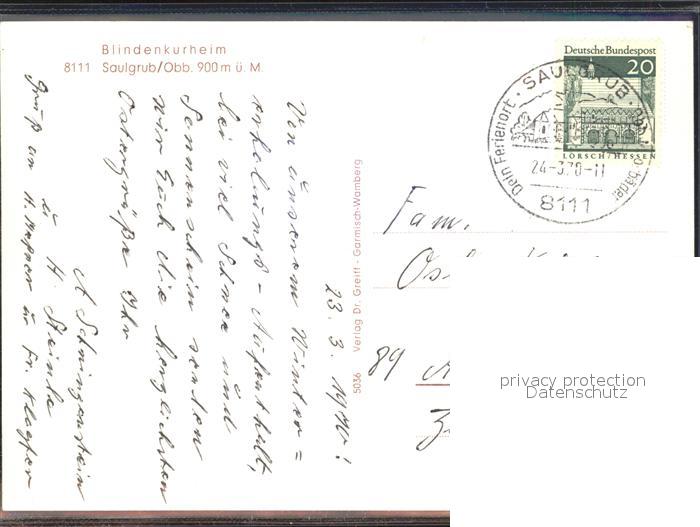 Blindenkurheim
8111 Saulgrub/Obb. 900 m ü. M.
Deutsche Bundespost
20
LORSCH/HESSEN
SAULGRUB · Obb.
Dein Ferienort
24-3.70-11
8111
23. 3. 1970!
Von unserem Winter=
erholungs-Aufenthalt,
bei viel Schnee und
Sonnenschein senden
wir Euch die herzlichsten
Ostergrüße Ihr
A Schwingenstein
u H. Steinle
Gruß an H. Wagner u Fr. Klagfer
5036 Verlag Dr. Greiff - Garmisch-Wamberg
Fam.
89
privacy protection
Datenschutz